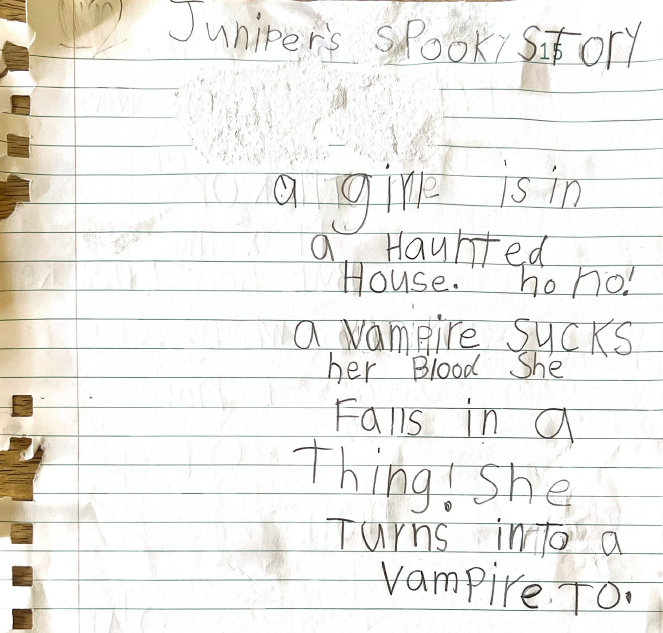 Juniper's SPooky STory
a girle is in
a Haunted
House. ho no!
a vampire SUCKS
her Blood She
Falls in a
Thing! She
Turns inTo a
VamPire TO.